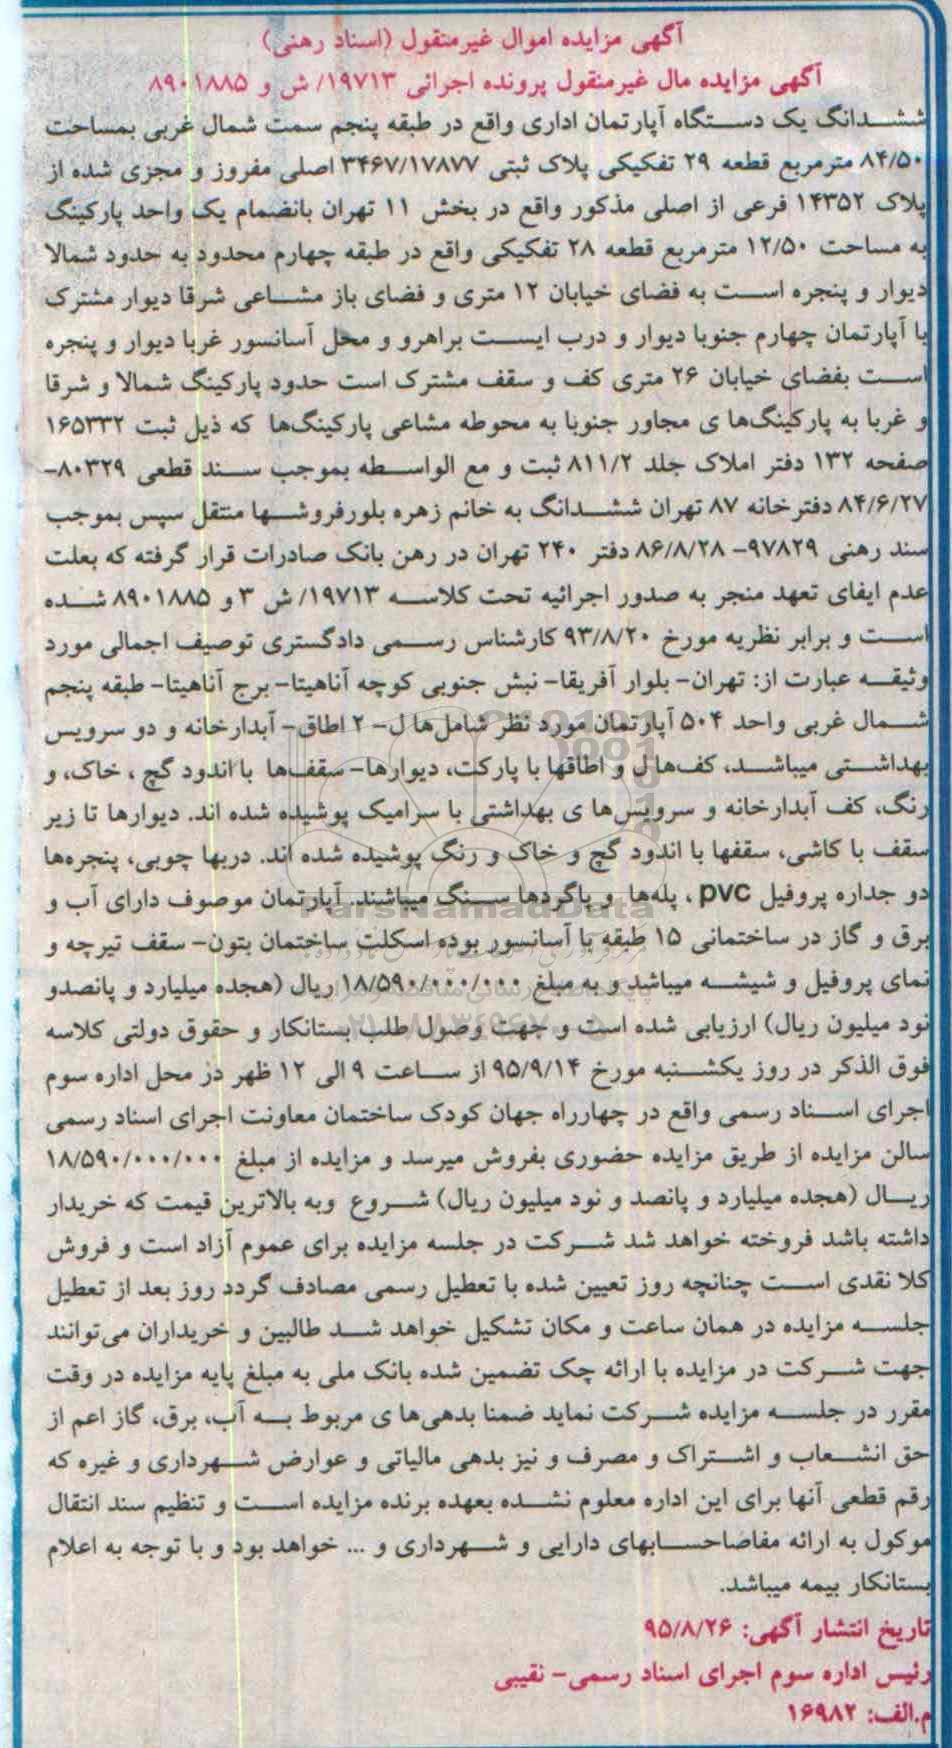 آگهی مزایده اموال غیرمنقول (اسناد رهنی)
آگهی مزایده مال غیرمنقول پرونده اجرائی ۱۹۷۱۳/ ش و ۸۹۰۱۸۸۵
ششدانگ یک دستگاه آپارتمان اداری واقع در طبقه پنجم سمت شمال غربی بمساحت
۸۴/۵۰ مترمربع قطعه ۲۹ تفکیکی پلاک ثبتی ۳۴۶۷/۱۷۸۷۷ اصلی مفروز و مجزی شده از
پلاک ۱۴۳۵۲ فرعی از اصلی مذکور واقع در بخش ۱۱ تهران بانضمام یک واحد پارکینگ
به مساحت ۱۲/۵۰ مترمربع قطعه ۲۸ تفکیکی واقع در طبقه چهارم محدود به حدود شمالا
دیوار و پنجره است به فضای خیابان ۱۲ متری و فضای باز مشاعی شرقا دیوار مشترک
با آپارتمان چهارم جنوبا دیوار و درب ایست براهرو و محل آسانسور غربا دیوار و پنجره
است بفضای خیابان ۲۶ متری کف و سقف مشترک است حدود پارکینگ شمالا و شرقا
و غربا به پارکینگ‌ها ی مجاور جنوبا به محوطه مشاعی پارکینگ‌ها که ذیل ثبت ۱۶۵۳۳۲
صفحه ۱۳۲ دفتر املاک جلد ۸۱۱/۲ ثبت و مع الواسطه بموجب سند قطعی ۸۰۳۲۹-
۸۴/۶/۲۷ دفترخانه ۸۷ تهران ششدانگ به خانم زهره بلورفروشها منتقل سپس بموجب
سند رهنی ۹۷۸۲۹- ۸۶/۸/۲۸ دفتر ۲۴۰ تهران در رهن بانک صادرات قرار گرفته که بعلت
عدم ایفای تعهد منجر به صدور اجرائیه تحت کلاسه ۱۹۷۱۳/ ش ۳ و ۸۹۰۱۸۸۵ شده
است و برابر نظریه مورخ ۹۳/۸/۲۰ کارشناس رسمی دادگستری توصیف اجمالی مورد
وثیقه عبارت از: تهران- بلوار آفریقا- نبش جنوبی کوچه آناهیتا- برج آناهیتا- طبقه پنجم
شمال غربی واحد ۵۰۴ آپارتمان مورد نظر شامل‌ها ل- ۲ اطاق- آبدارخانه و دو سرویس
بهداشتی میباشد، کف‌ها ل و اطاقها با پارکت، دیوارها- سقف‌ها با اندود گچ ، خاک، و
رنگ، کف آبدارخانه و سرویس‌ها ی بهداشتی با سرامیک پوشیده شده اند. دیوارها تا زیر
سقف با کاشی، سقفها با اندود گچ و خاک و رنگ پوشیده شده اند. دربها چوبی، پنجره‌ها
دو جداره پروفیل pvc ، پله‌ها و پاگردها سنگ میباشند. آپارتمان موصوف دارای آب و
برق و گاز در ساختمانی ۱۵ طبقه با آسانسور بوده اسکلت ساختمان بتون- سقف تیرچه و
نمای پروفیل و شیشه میباشد و به مبلغ ۱۸/۵۹۰/۰۰۰/۰۰۰ ریال (هجده میلیارد و پانصدو
نود میلیون ریال) ارزیابی شده است و جهت وصول طلب بستانکار و حقوق دولتی کلاسه
فوق الذکر در روز یکشنبه مورخ ۹۵/۹/۱۴ از ساعت ۹ الی ۱۲ ظهر در محل اداره سوم
اجرای اسناد رسمی واقع در چهارراه جهان کودک ساختمان معاونت اجرای اسناد رسمی
سالن مزایده از طریق مزایده حضوری بفروش میرسد و مزایده از مبلغ ۱۸/۵۹۰/۰۰۰/۰۰۰
ریال (هجده میلیارد و پانصد و نود میلیون ریال) شروع وبه بالاترین قیمت که خریدار
داشته باشد فروخته خواهد شد شرکت در جلسه مزایده برای عموم آزاد است و فروش
کلا نقدی است چنانچه روز تعیین شده با تعطیل رسمی مصادف گردد روز بعد از تعطیل
جلسه مزایده در همان ساعت و مکان تشکیل خواهد شد طالبین و خریداران می‌توانند
جهت شرکت در مزایده با ارائه چک تضمین شده بانک ملی به مبلغ پایه مزایده در وقت
مقرر در جلسه مزایده شرکت نماید ضمنا بدهی‌ها ی مربوط به آب، برق، گاز اعم از
حق انشعاب و اشتراک و مصرف و نیز بدهی مالیاتی و عوارض شهرداری و غیره که
رقم قطعی آنها برای این اداره معلوم نشده بعهده برنده مزایده است و تنظیم سند انتقال
موکول به ارائه مفاصاحسابهای دارایی و شهرداری و ... خواهد بود و با توجه به اعلام
بستانکار بیمه میباشد.
تاریخ انتشار آگهی: ۹۵/۸/۲۶
رئیس اداره سوم اجرای اسناد رسمی- نقیبی
م.الف: ۱۶۹۸۲
ParsNamadData